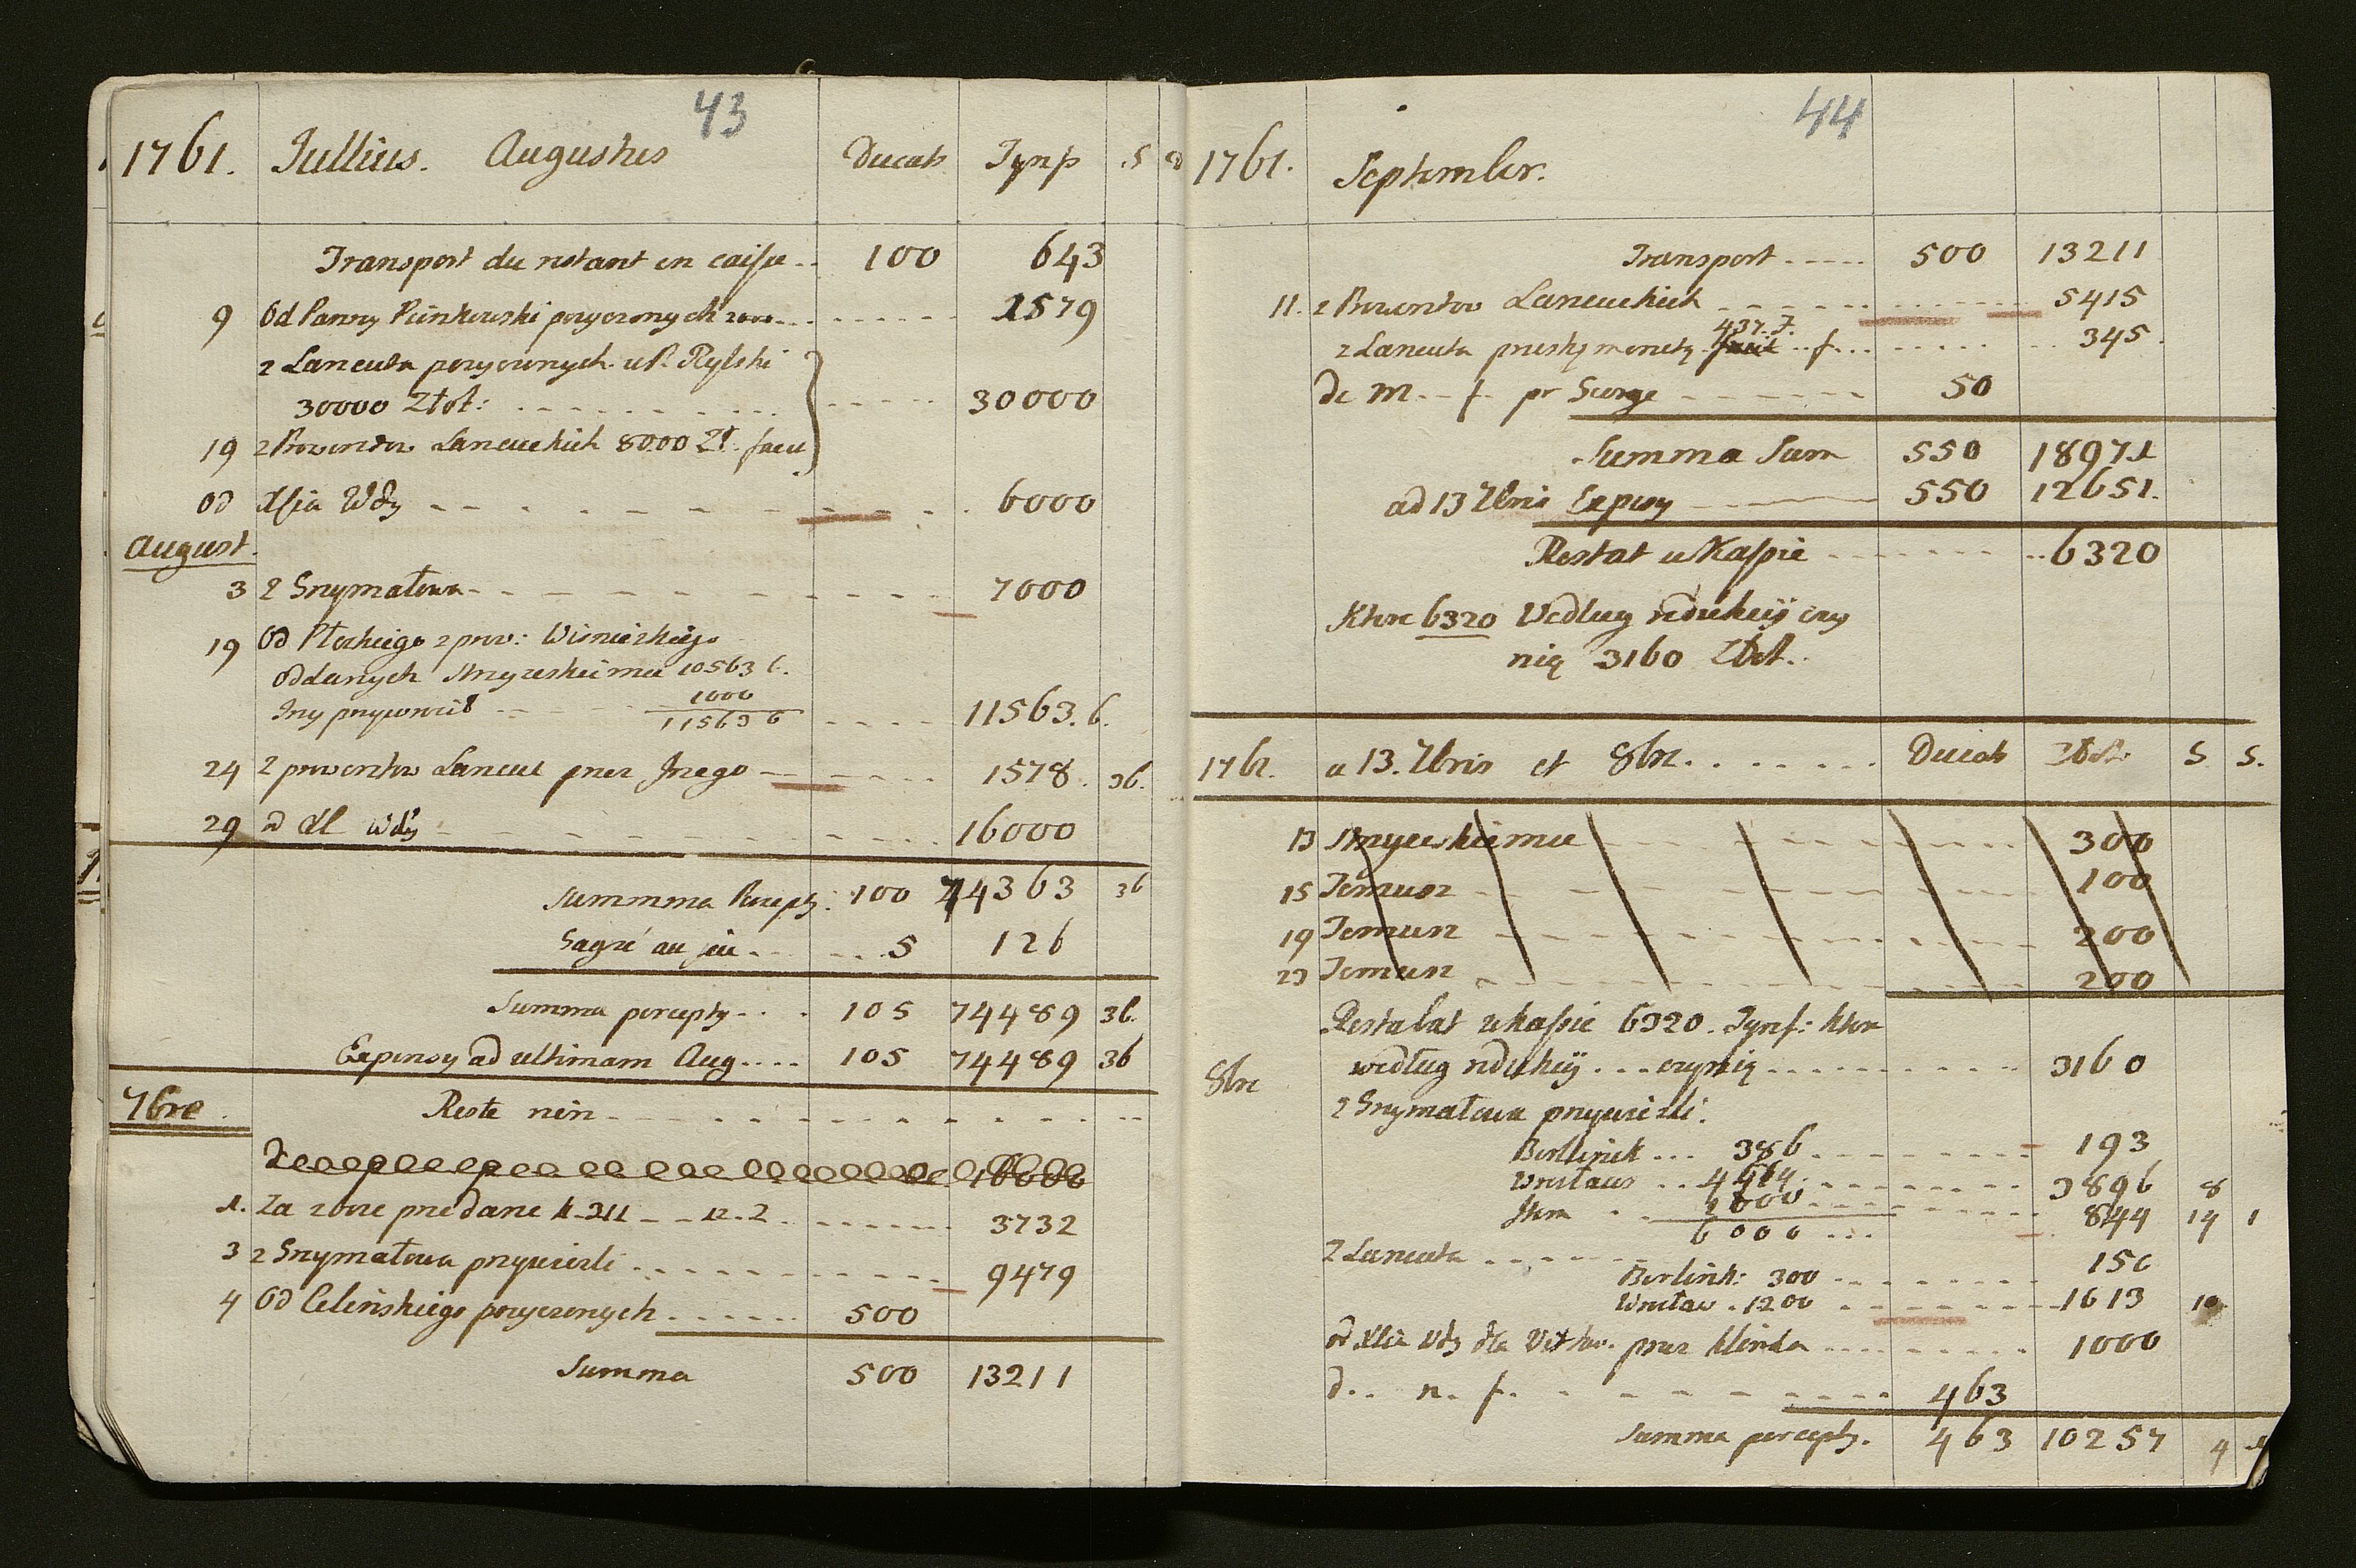 43
1761. Jullius. Augustus Ducats Tynf S
Transport du restant en caisse .. 100 643
9 Od Panny Pienkowski pozyczonych 2000... 1579
z Lancuta pozyczonych u P. Rylski
30000 Złot: 30000
19 z Prowentow Lancuckich 8000 Zł. facit
od Xsia Wdy 6000
August.
3 z Szrymatowa 7000
19 Od Ptockiego z prow: Wisnickiego
oddanych 10563 6.
1000
Iny przywozil 11563 6 11563. 6.
24 z prowentow Lancuc przez Jnego 1578. 36.
29 od Xl Wdy 16000
Summma Recepty. 100 74363 36
Gagné au jeu 5 126
Summa percepty 105 74489 36.
Expensy ad ultimam Aug.... 105 74489 36
7bre. Reste nén
16000
1. Za zboze przedane 3732
3 z Szrymatowa przywiezli 9479
4 Od Celeńskiego pozyczonych 500
Summa 500 13211
44
1761. September.
Transport 500 13211
11. z Prowentow Lancuckich 5415
437. F.
z Lancuta pruskej monety f... 345.
de M. - f. pr George 50
Summa Sum 550 18971
ad 13 7bris Expensy 550 12651.
Restat w Kassie 6320
Ktore 6320 Vedlug redukcij czy
nią 3160 Złot..
1761. a 13. 7bris et 8bre. Ducats Złot: S S.
13 300
15 Temusz 100
19 Temusz 200
23 Temusz 200
Restabat w Kassie 6320. Tynf: ktore
8bre według redukcij ... czynią 3160
z Szrymatowa przywiezli.
Berlinck ... 386 193
Wrotaws .. 4614 3896 8
Item 1000 844 14 1
6000 ...
z Lancuta
Berlink: 300 150
Wrotaw . 1200 1613 10
od Xsia Wdy dla przez Klinda 1000
d.. n. f. 463
Summa percepty. 463 10257 4 1